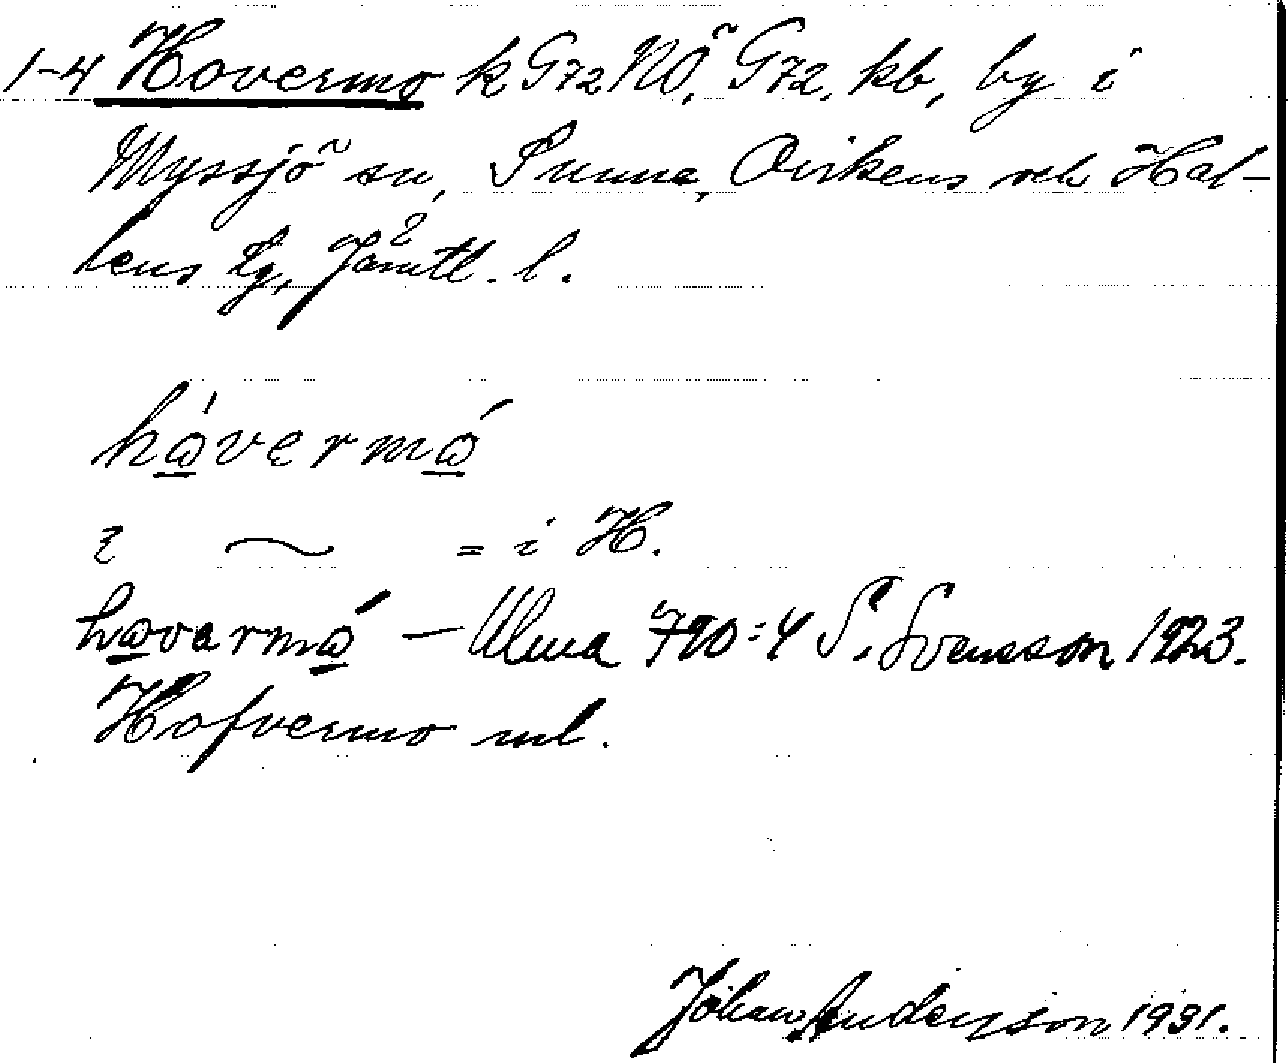 1-4 Hovermo k G72 NÖ, G72, kb, by i
Myssjö sn, Sunne, Ovikens och Hal-
lens tg, Jämtl. l.
håvermó
ɪ ~ = i H.
håvarmó — Ulma 790:4 S. Svensson 1923.
Hofvermo ml.
Johan Anderson 1931.